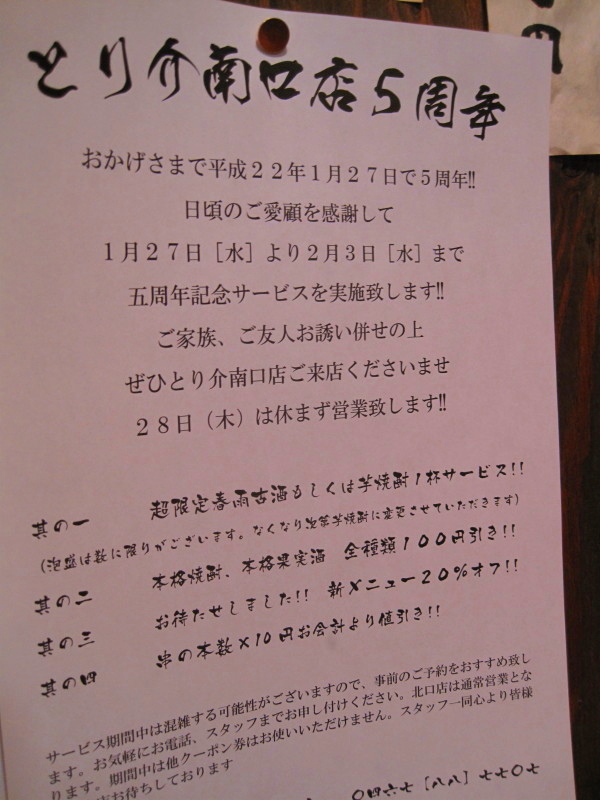 とり介南口店5周年
おかげさまで平成22年1月27日で5周年!!
日頃のご愛顧を感謝して
1月27日［水］より2月3日［水］まで
五周年記念サービスを実施致します!!
ご家族、ご友人お誘い併せの上
ぜひとり介南口店ご来店くださいませ
28日（木）は休まず営業致します!!
其の一 超限定春雨古酒もしくは芋焼酎1杯サービス!!
(泡盛は数に限りがございます。なくなり次第芋焼酎に変更させていただきます)
其の二 本格焼酎、本格果実酒 全種類100円引き!!
其の三 お待たせしました!! 新メニュー20%オフ!!
其の四 串の本数×10円お会計より値引き!!
サービス期間中は混雑する可能性がございますので、事前のご予約をおすすめ致し
ます。お気軽にお電話、スタッフまでお申し付けください。北口店は通常営業とな
ります。期間中は他クーポン券はお使いいただけません。スタッフ一同心より皆様
お待ちしております
〇四六七［八八］七七〇七
円